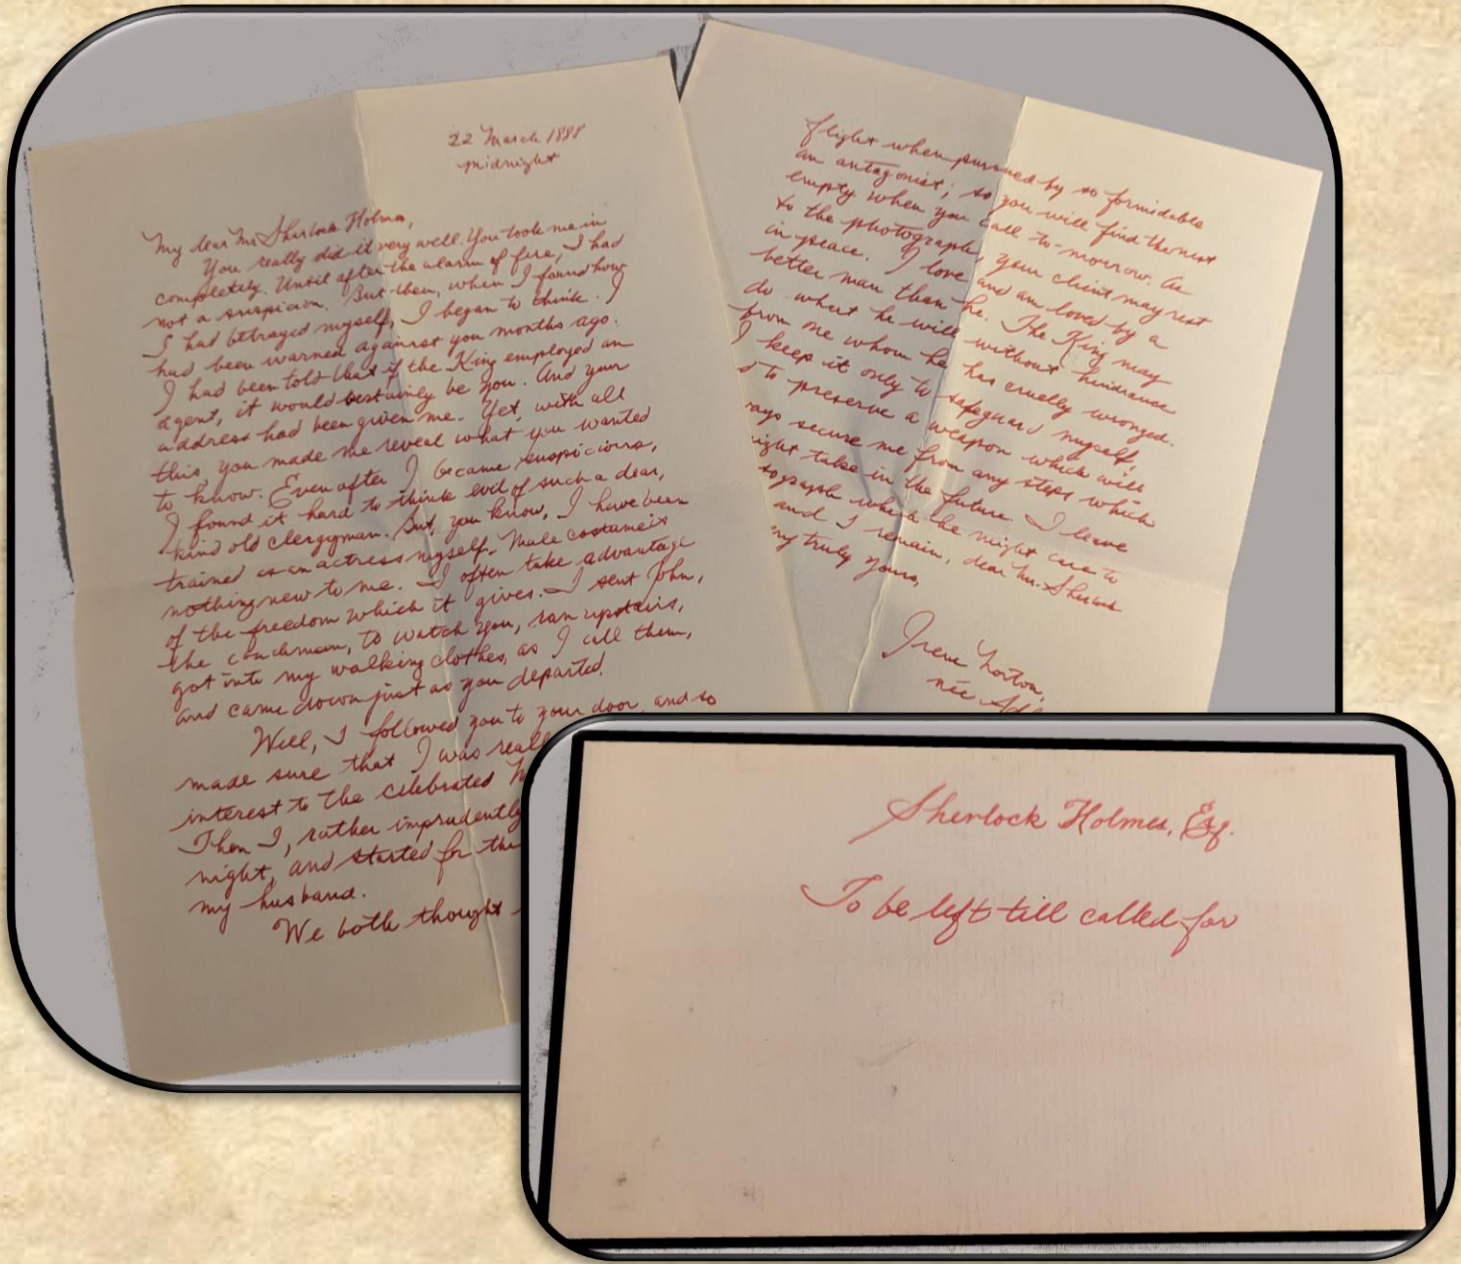 22 March 1888
midnight
My dear Mr. Sherlock Holmes,
You really did it very well. You took me in
completely. Until after the alarm of fire, I had
not a suspicion. But then, when I found how
I had betrayed myself, I began to think. I
had been warned against you months ago.
I had been told that if the King employed an
agent, it would certainly be you. And your
address had been given me. Yet, with all
this, you made me reveal what you wanted
to know. Even after I became suspicious,
I found it hard to think evil of such a dear,
kind old clergyman. But, you know, I have been
trained as an actress myself. Male costume is
nothing new to me. I often take advantage
of the freedom which it gives. I sent John,
the coachman, to watch you, ran upstairs,
got into my walking clothes, as I call them,
and came down just as you departed.
Well, I followed you to your door, and so
made sure that I was
interest to the celebrated
Then I, rather imprudently
night, and started for the
my husband.
We both thought
flight when pursued by so formidable
an antagonist; so you will find the nest
empty when you call to-morrow. As
to the photograph, your client may rest
in peace. I love and am loved by a
better man than he. The King may
do what he will without hindrance
from me whom he has cruelly wronged.
I keep it only to safeguard myself,
to preserve a weapon which will
secure me from any steps which
take in the future. I leave
which he might care to
and I remain, dear Mr. Sherlock
truly yours,
Irene Norton,
née
Sherlock Holmes, Esq.
To be left till called for